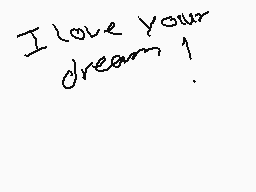 I love your
dream!